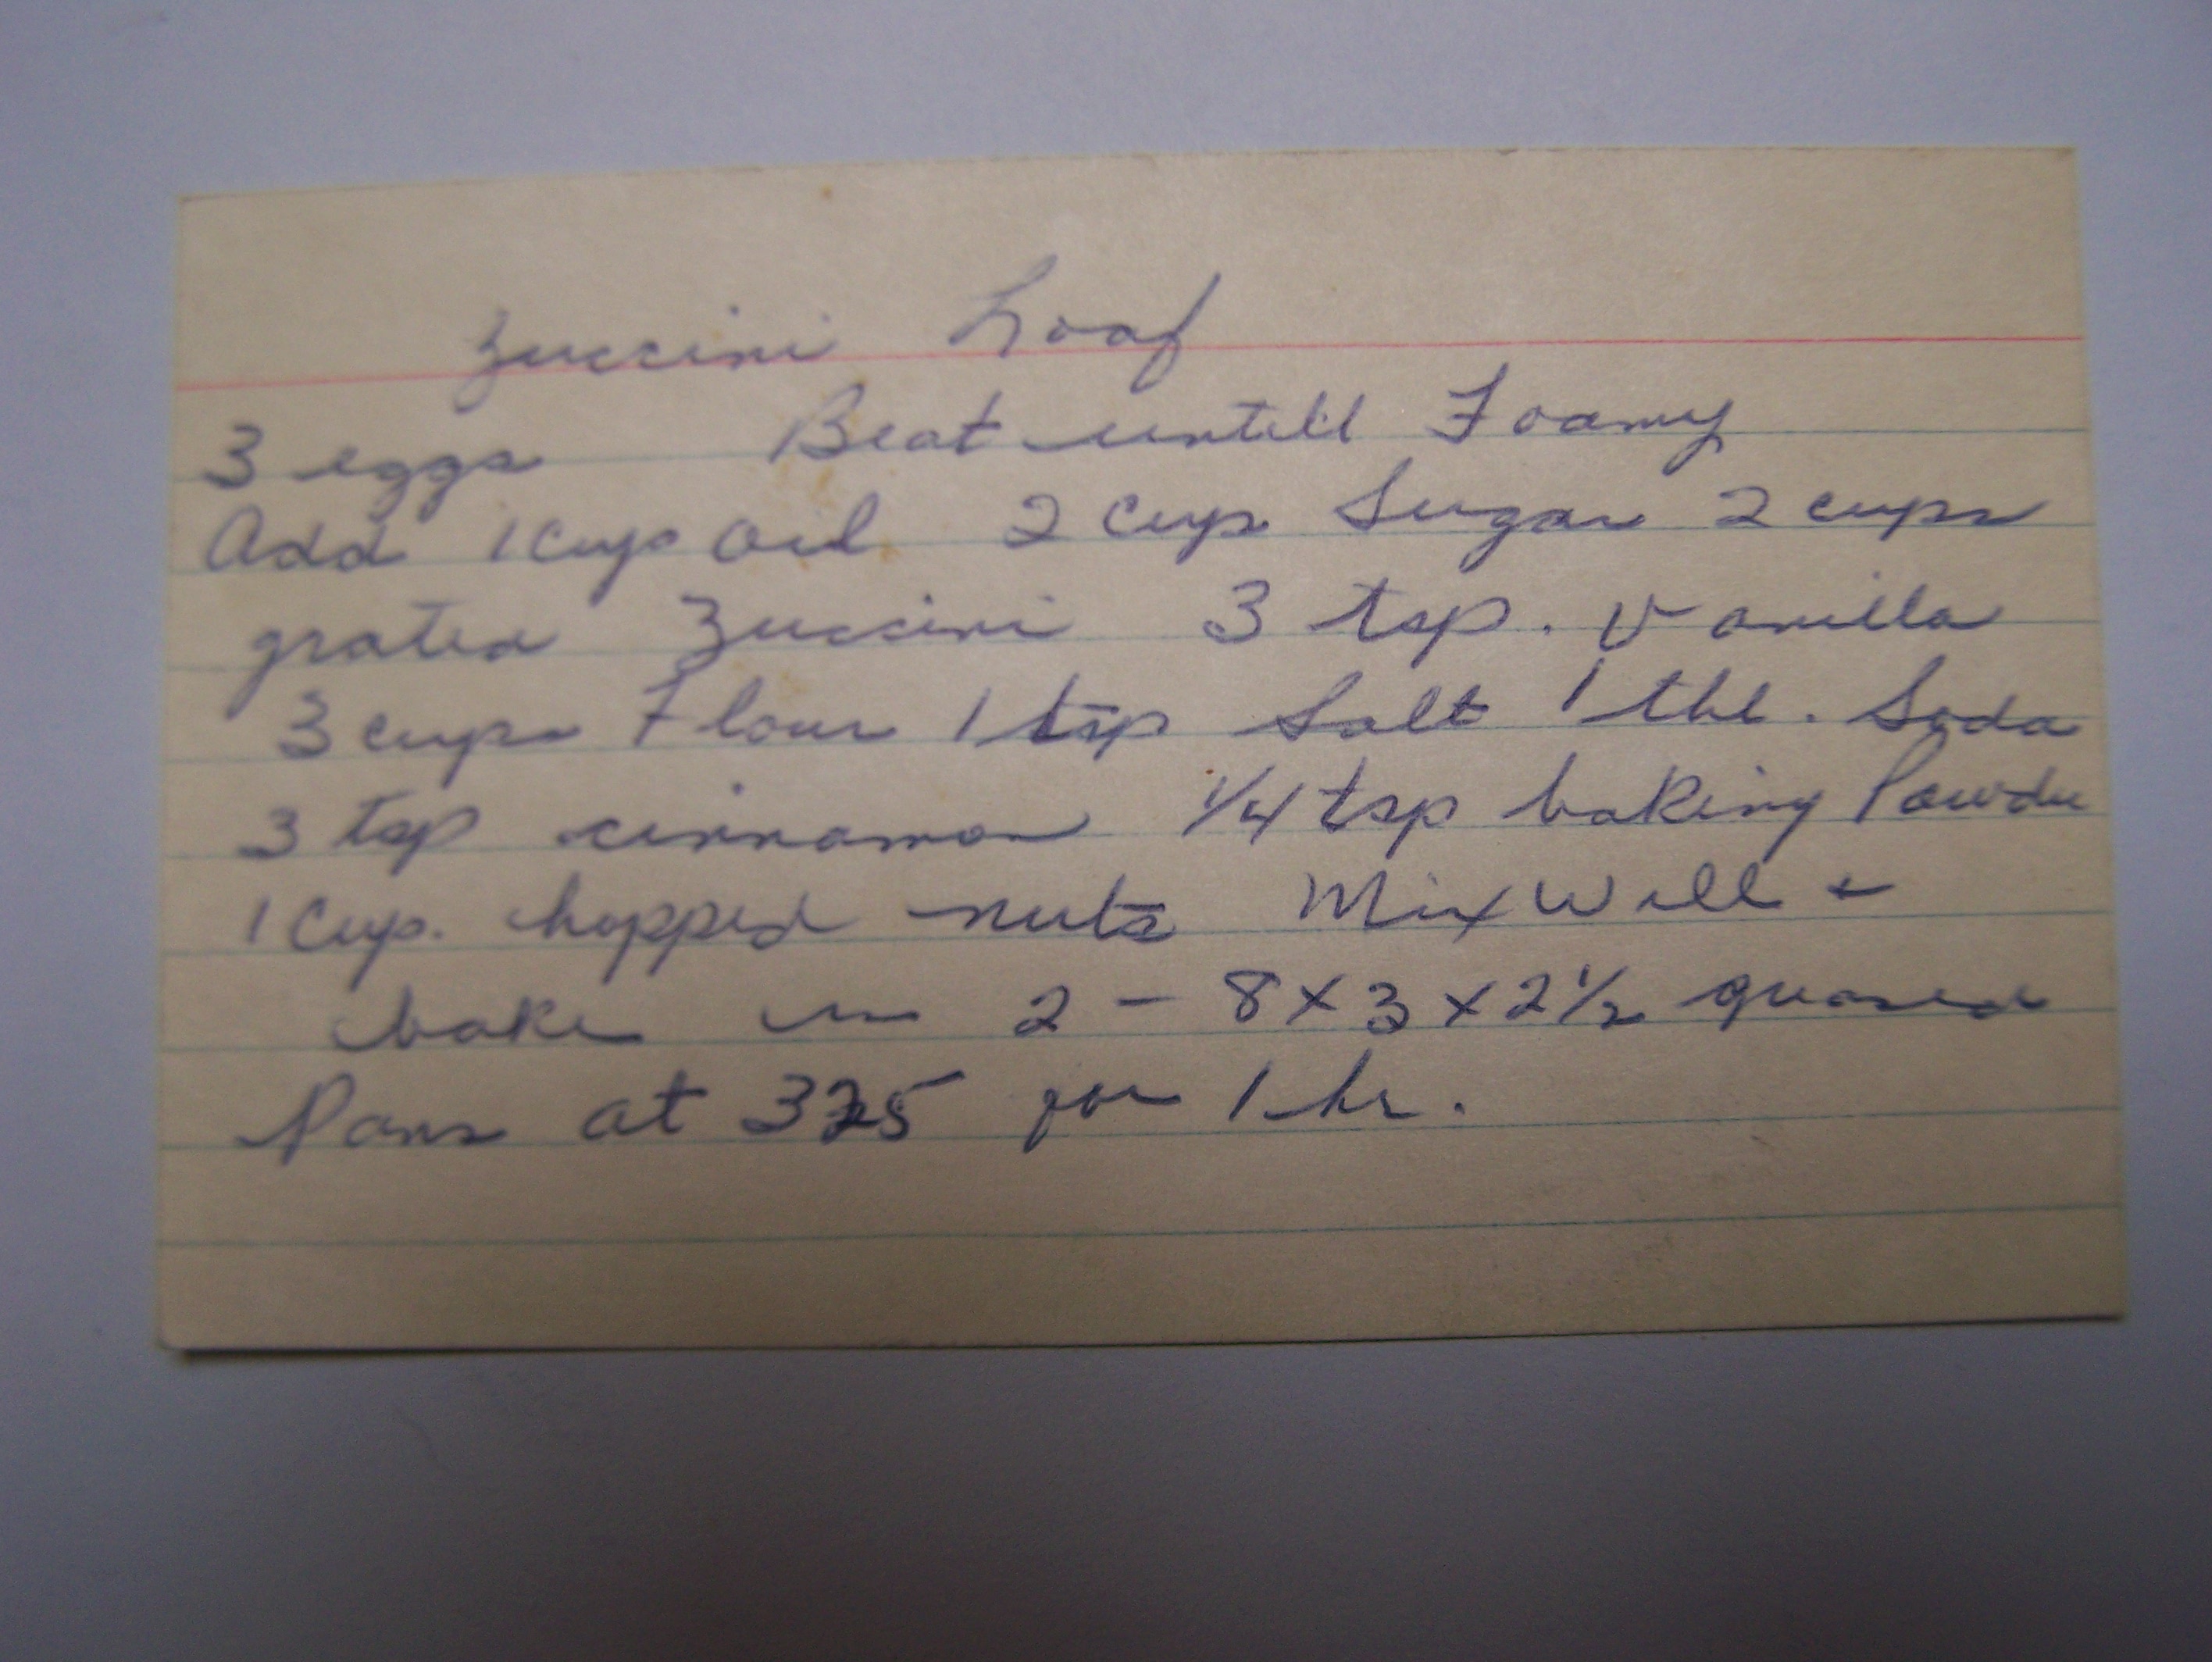 Zuccini Loaf
3 eggs Beat untill Foamy
Add 1 cup oil 2 cup Sugar 2 cups
grated Zuccini 3 tsp. Vanilla
3 cups Flour 1 tsp Salt 1 tbl. Soda
3 tsp cinnamon 1/4 tsp baking Powder
1 Cup. chopped nuts Mix Well +
bake in 2 - 8 x 3 x 2 1/2 greased
Pans at 325 for 1 hr.